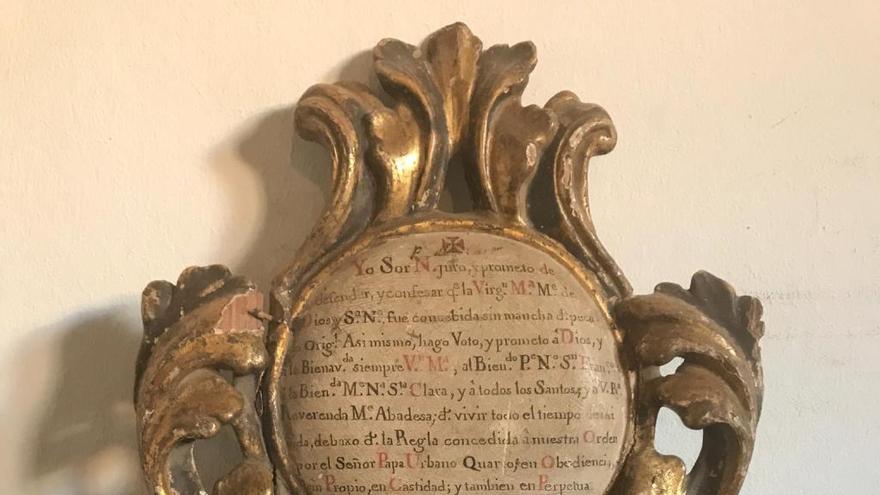 Yo Sor N. juro, y prometo de
defender, y confesar qͤ la Virgⁿ Mᵃ Mͤ de
Dios y Sᵃ Nᵃ fuè concebida sin mancha dͤ peca
Origˡ Asi mismo, hago Voto, y prometo â Dios, y
à la Bienav.ᵈᵃ siempre Vⁿ Mᵃ, al Bien.ᵈᵒ Pͤ Nᵒ Sⁿ Fran.ᶜᵒ
à la Bien.ᵈᵃ Mͤ Nᵃ Sᵗᵃ Clara, y â todos los Santos, y a V. Rᵃ
Reverenda Mͤ Abadesa; dͤ vivir todo el tiempo de mi
vida, debaxo dͤ la Regla concedida â nuestra Orden
por el Señor Papa Urbano Quarto, en Obediencia,
sin Propio, en Castidad; y tambien en Perpetua